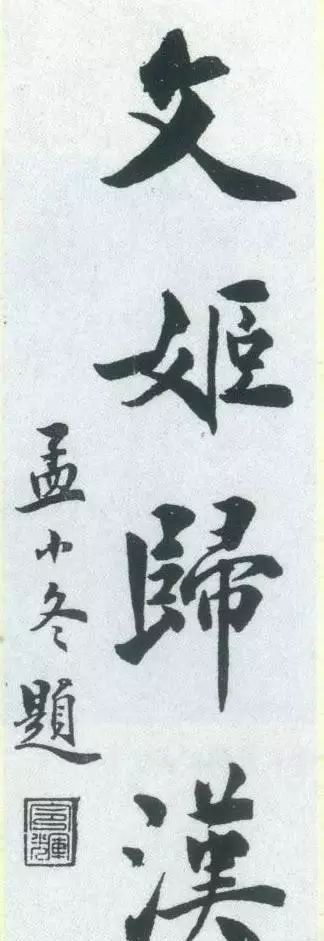 文姬歸漢
孟小冬題